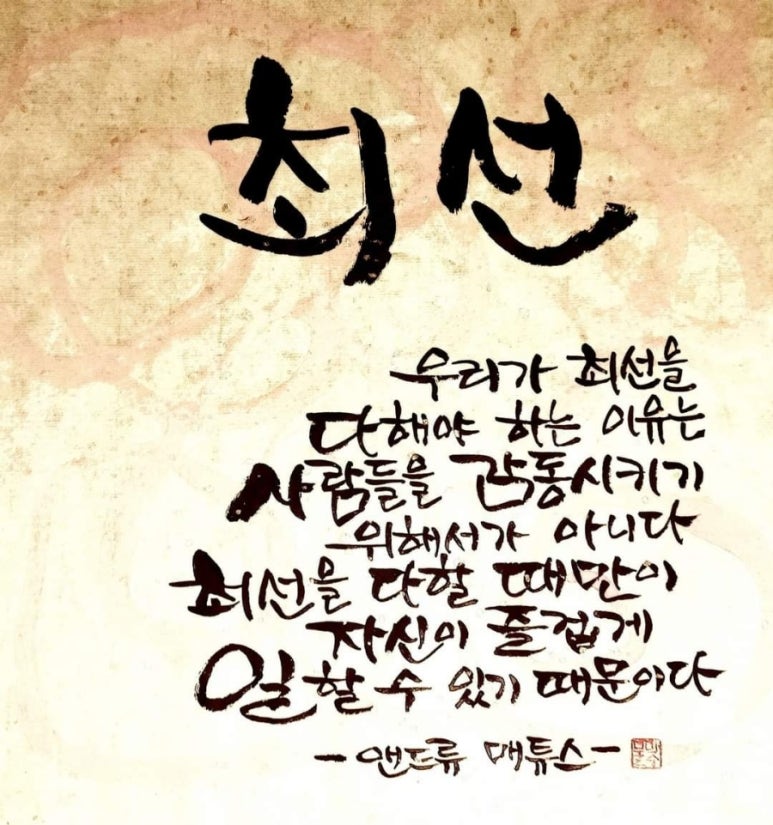 최선
우리가 최선을
다해야 하는 이유는
사람들을 감동시키기
위해서가 아니다
최선을 다할 때만이
자신이 즐겁게
일할 수 있기 때문이다
-앤드류 매튜스-